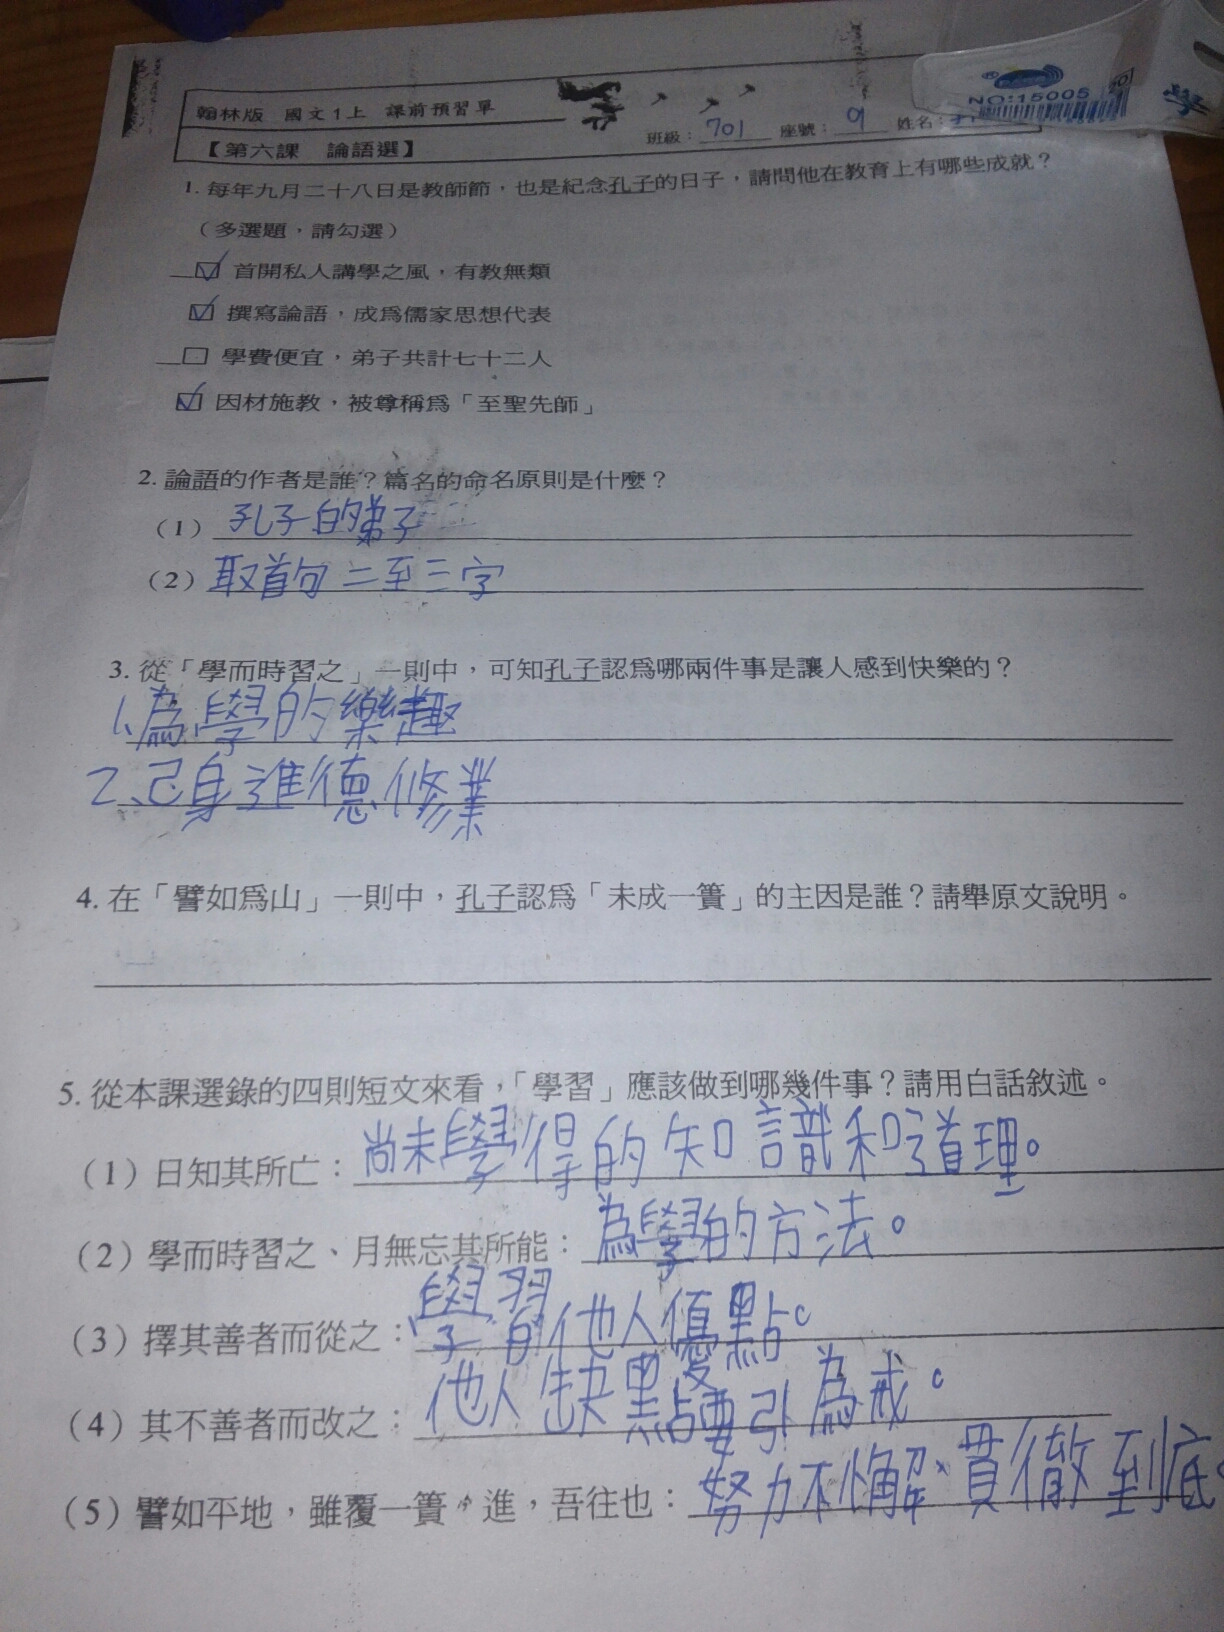 NO:15005
學
翰林版 國文1上 課前預習單
班級：701 座號：9 姓名：
【第六課 論語選】
1. 每年九月二十八日是教師節，也是紀念孔子的日子，請問他在教育上有哪些成就？
（多選題，請勾選）
☑ 首開私人講學之風，有教無類
☑ 撰寫論語，成爲儒家思想代表
☐ 學費便宜，弟子共計七十二人
☑ 因材施教，被尊稱爲「至聖先師」
2. 論語的作者是誰？篇名的命名原則是什麼？
（1）孔子的弟子
（2）取首句二至三字
3. 從「學而時習之」一則中，可知孔子認爲哪兩件事是讓人感到快樂的？
1、為學的樂趣
2、己身進德修業
4. 在「譬如爲山」一則中，孔子認爲「未成一簣」的主因是誰？請舉原文說明。
5. 從本課選錄的四則短文來看，「學習」應該做到哪幾件事？請用白話敘述。
（1）日知其所亡：尚未學得的知識和道理。
（2）學而時習之、月無忘其所能：為學的方法。
（3）擇其善者而從之：學習前他人優點。
（4）其不善者而改之：他人缺點要引為戒。
（5）譬如平地，雖覆一簣，進，吾往也：努力不懈、貫徹到底。